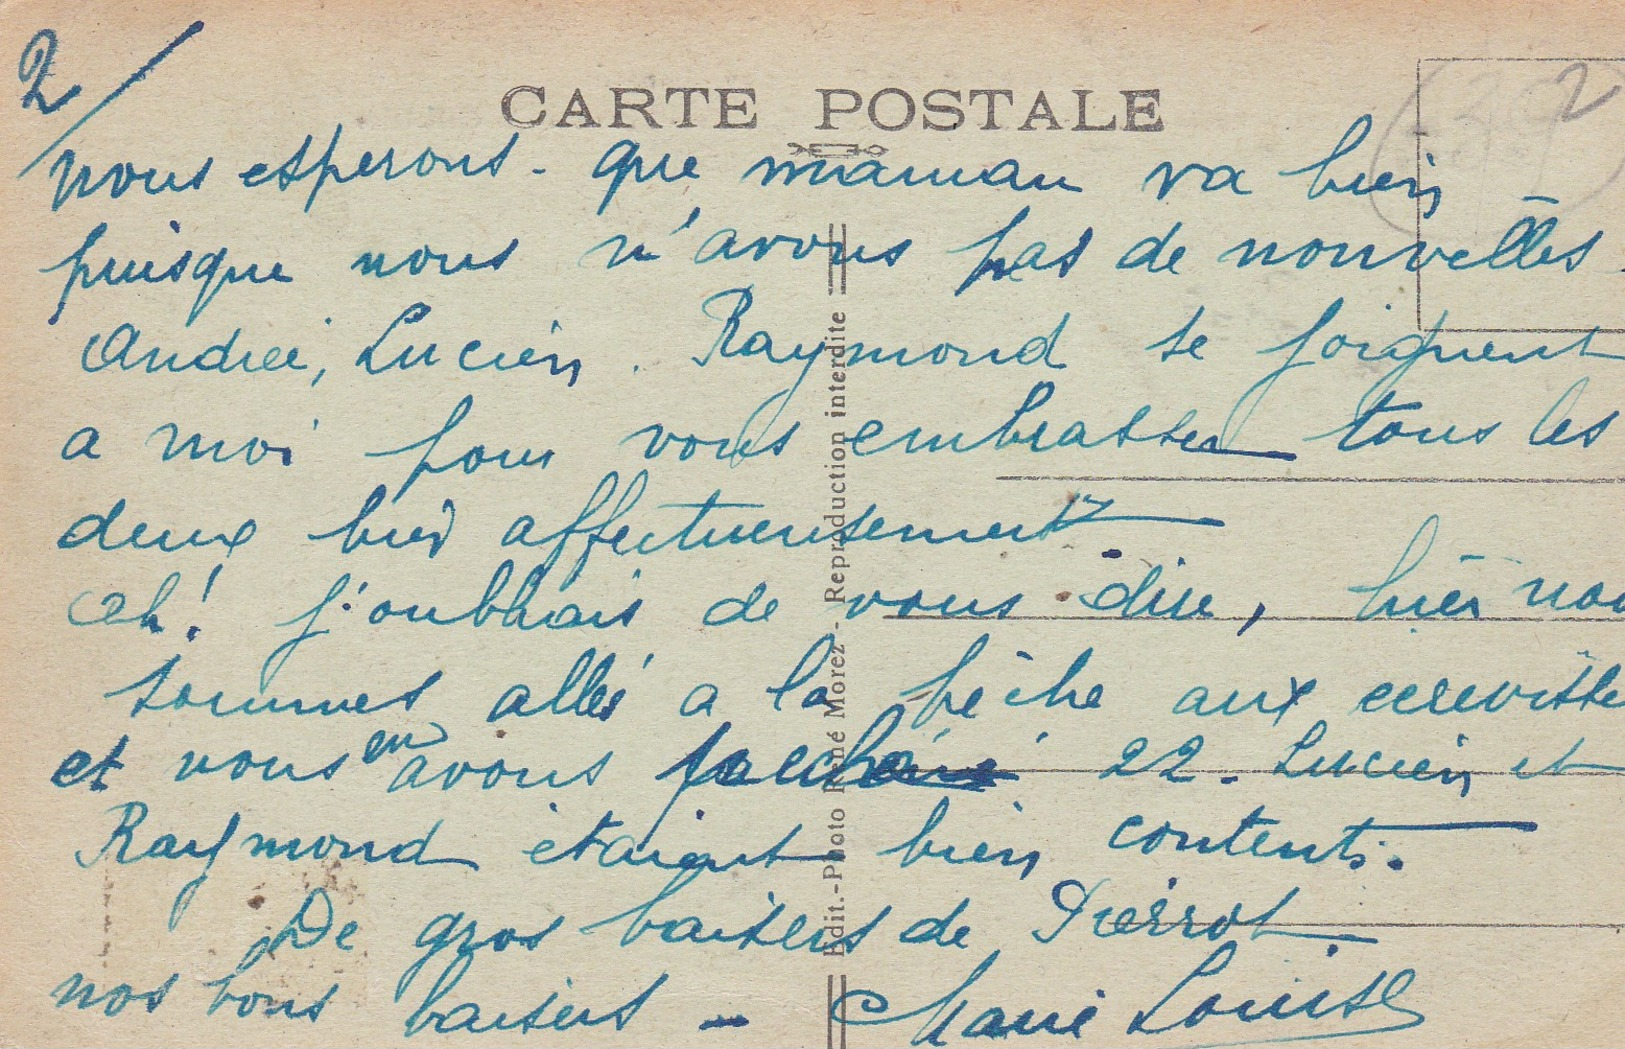 2/
CARTE POSTALE
2
nous esperons - que maman va bien -
puisque nous n'avons pas de nouvelles.
André, Lucien. Raymond se joignent
a moi pour vous embrasser tous les
deux bien affectueusement.
Oh! j'oubliais de vous dire, hier nou
sommes allés a la pêche aux ecrevisse
et vous en avons 22. Lucien et
Raymond étaient bien contents.
De gros baisers de Pierrot.
nos bons baisers - Marie Louise
Edit.-Photo René Morez - Reproduction interdite